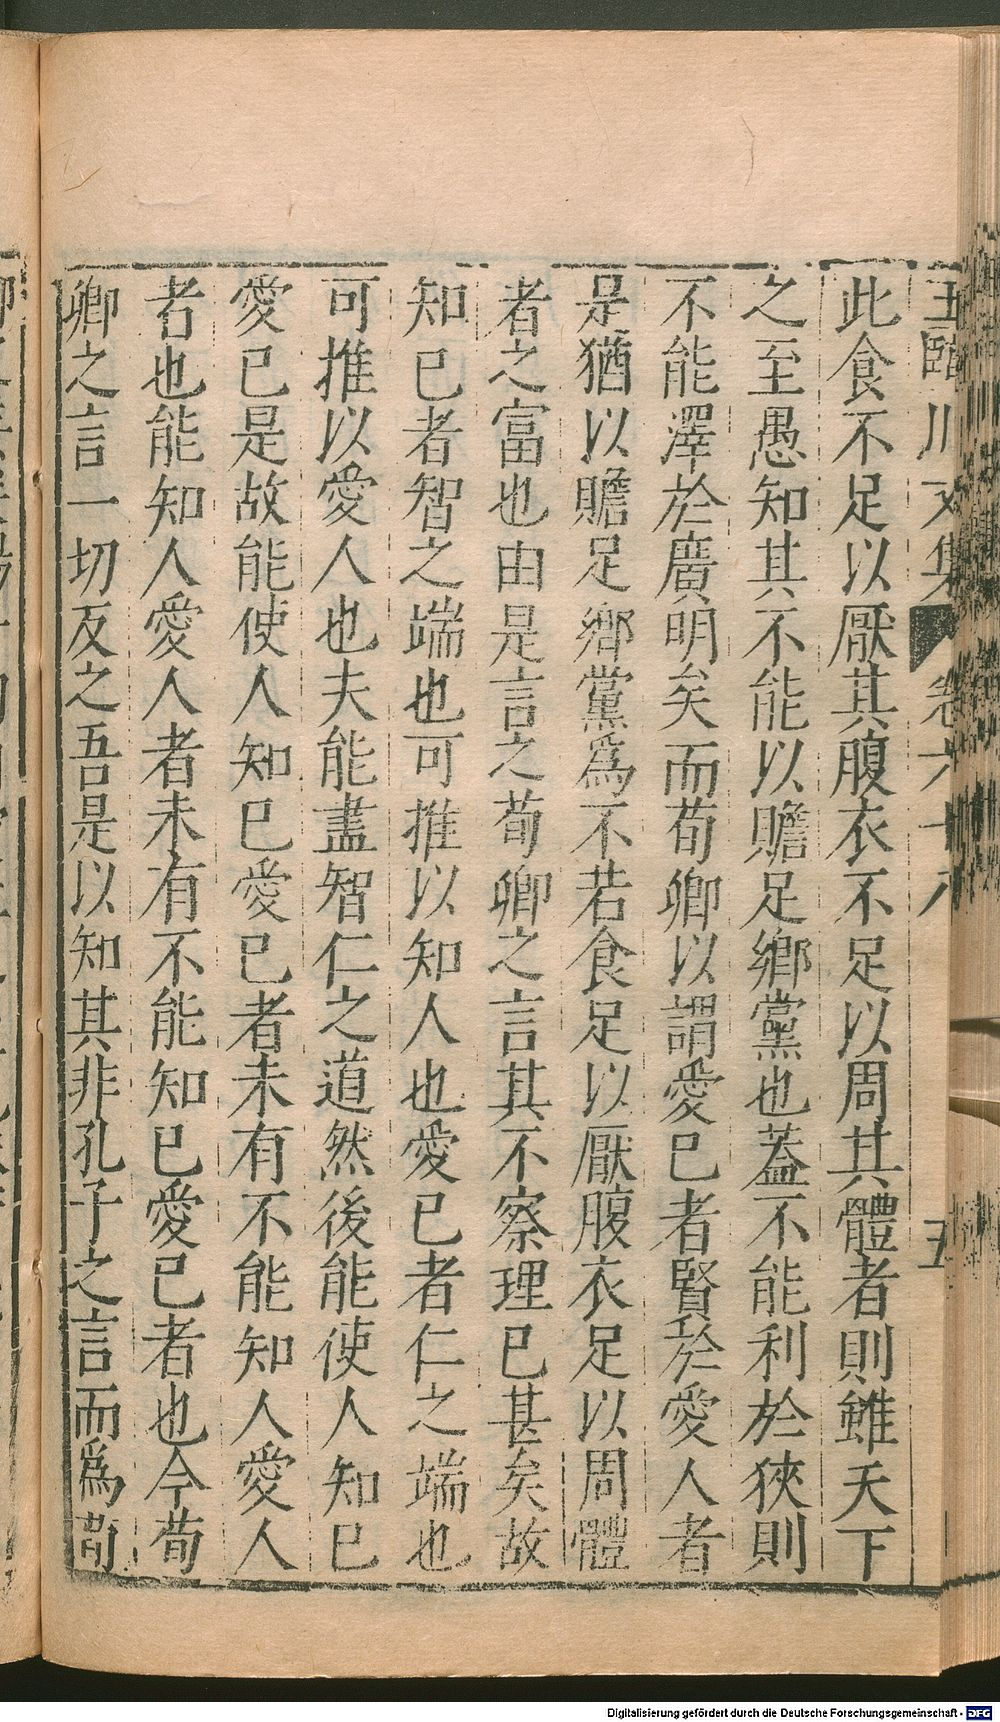 王臨川文集 卷六十八 五
此食不足以厭其腹衣不足以周其體者則雖天下
之至愚知其不能以贍足鄉黨也蓋不能利於狹則
不能澤於廣明矣而荀卿以謂愛已者賢於愛人者
是猶以贍足鄉黨爲不若食足以厭腹衣足以周體
者之富也由是言之荀卿之言其不察理已甚矣故
知已者智之端也可推以知人也愛已者仁之端也
可推以愛人也夫能盡智仁之道然後能使人知已
愛已是故能使人知已愛已者未有不能知人愛人
者也能知人愛人者未有不能知已愛已者也今荀
卿之言一切反之吾是以知其非孔子之言而爲荀
Digitalisierung gefördert durch die Deutsche Forschungsgemeinschaft - DFG